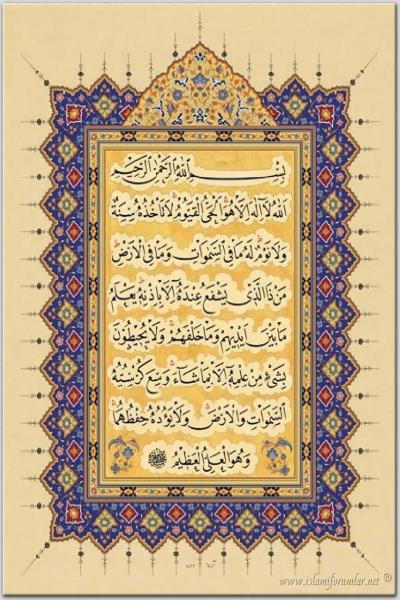 بِسْمِ اللهِ الرَّحْمٰنِ الرَّحِيمِ
اَللهُ لَا اِلٰهَ اِلَّا هُوَ الْحَيُّ الْقَيُّومُ لَا تَأْخُذُهُ سِنَةٌ
وَلَا نَوْمٌ لَهُ مَا فِي السَّمٰوَاتِ وَمَا فِي الْاَرْضِ
مَنْ ذَا الَّذِي يَشْفَعُ عِنْدَهُ اِلَّا بِاِذْنِهِ يَعْلَمُ
مَا بَيْنَ اَيْدِيهِمْ وَمَا خَلْفَهُمْ وَلَا يُحِيطُونَ
بِشَيْءٍ مِنْ عِلْمِهِ اِلَّا بِمَا شَاءَ وَسِعَ كُرْسِيُّهُ
السَّمٰوَاتِ وَالْاَرْضَ وَلَا يَؤُدُهُ حِفْظُهُمَا
وَهُوَ الْعَلِيُّ الْعَظِيمُ
www.islamiforumlar.net ®